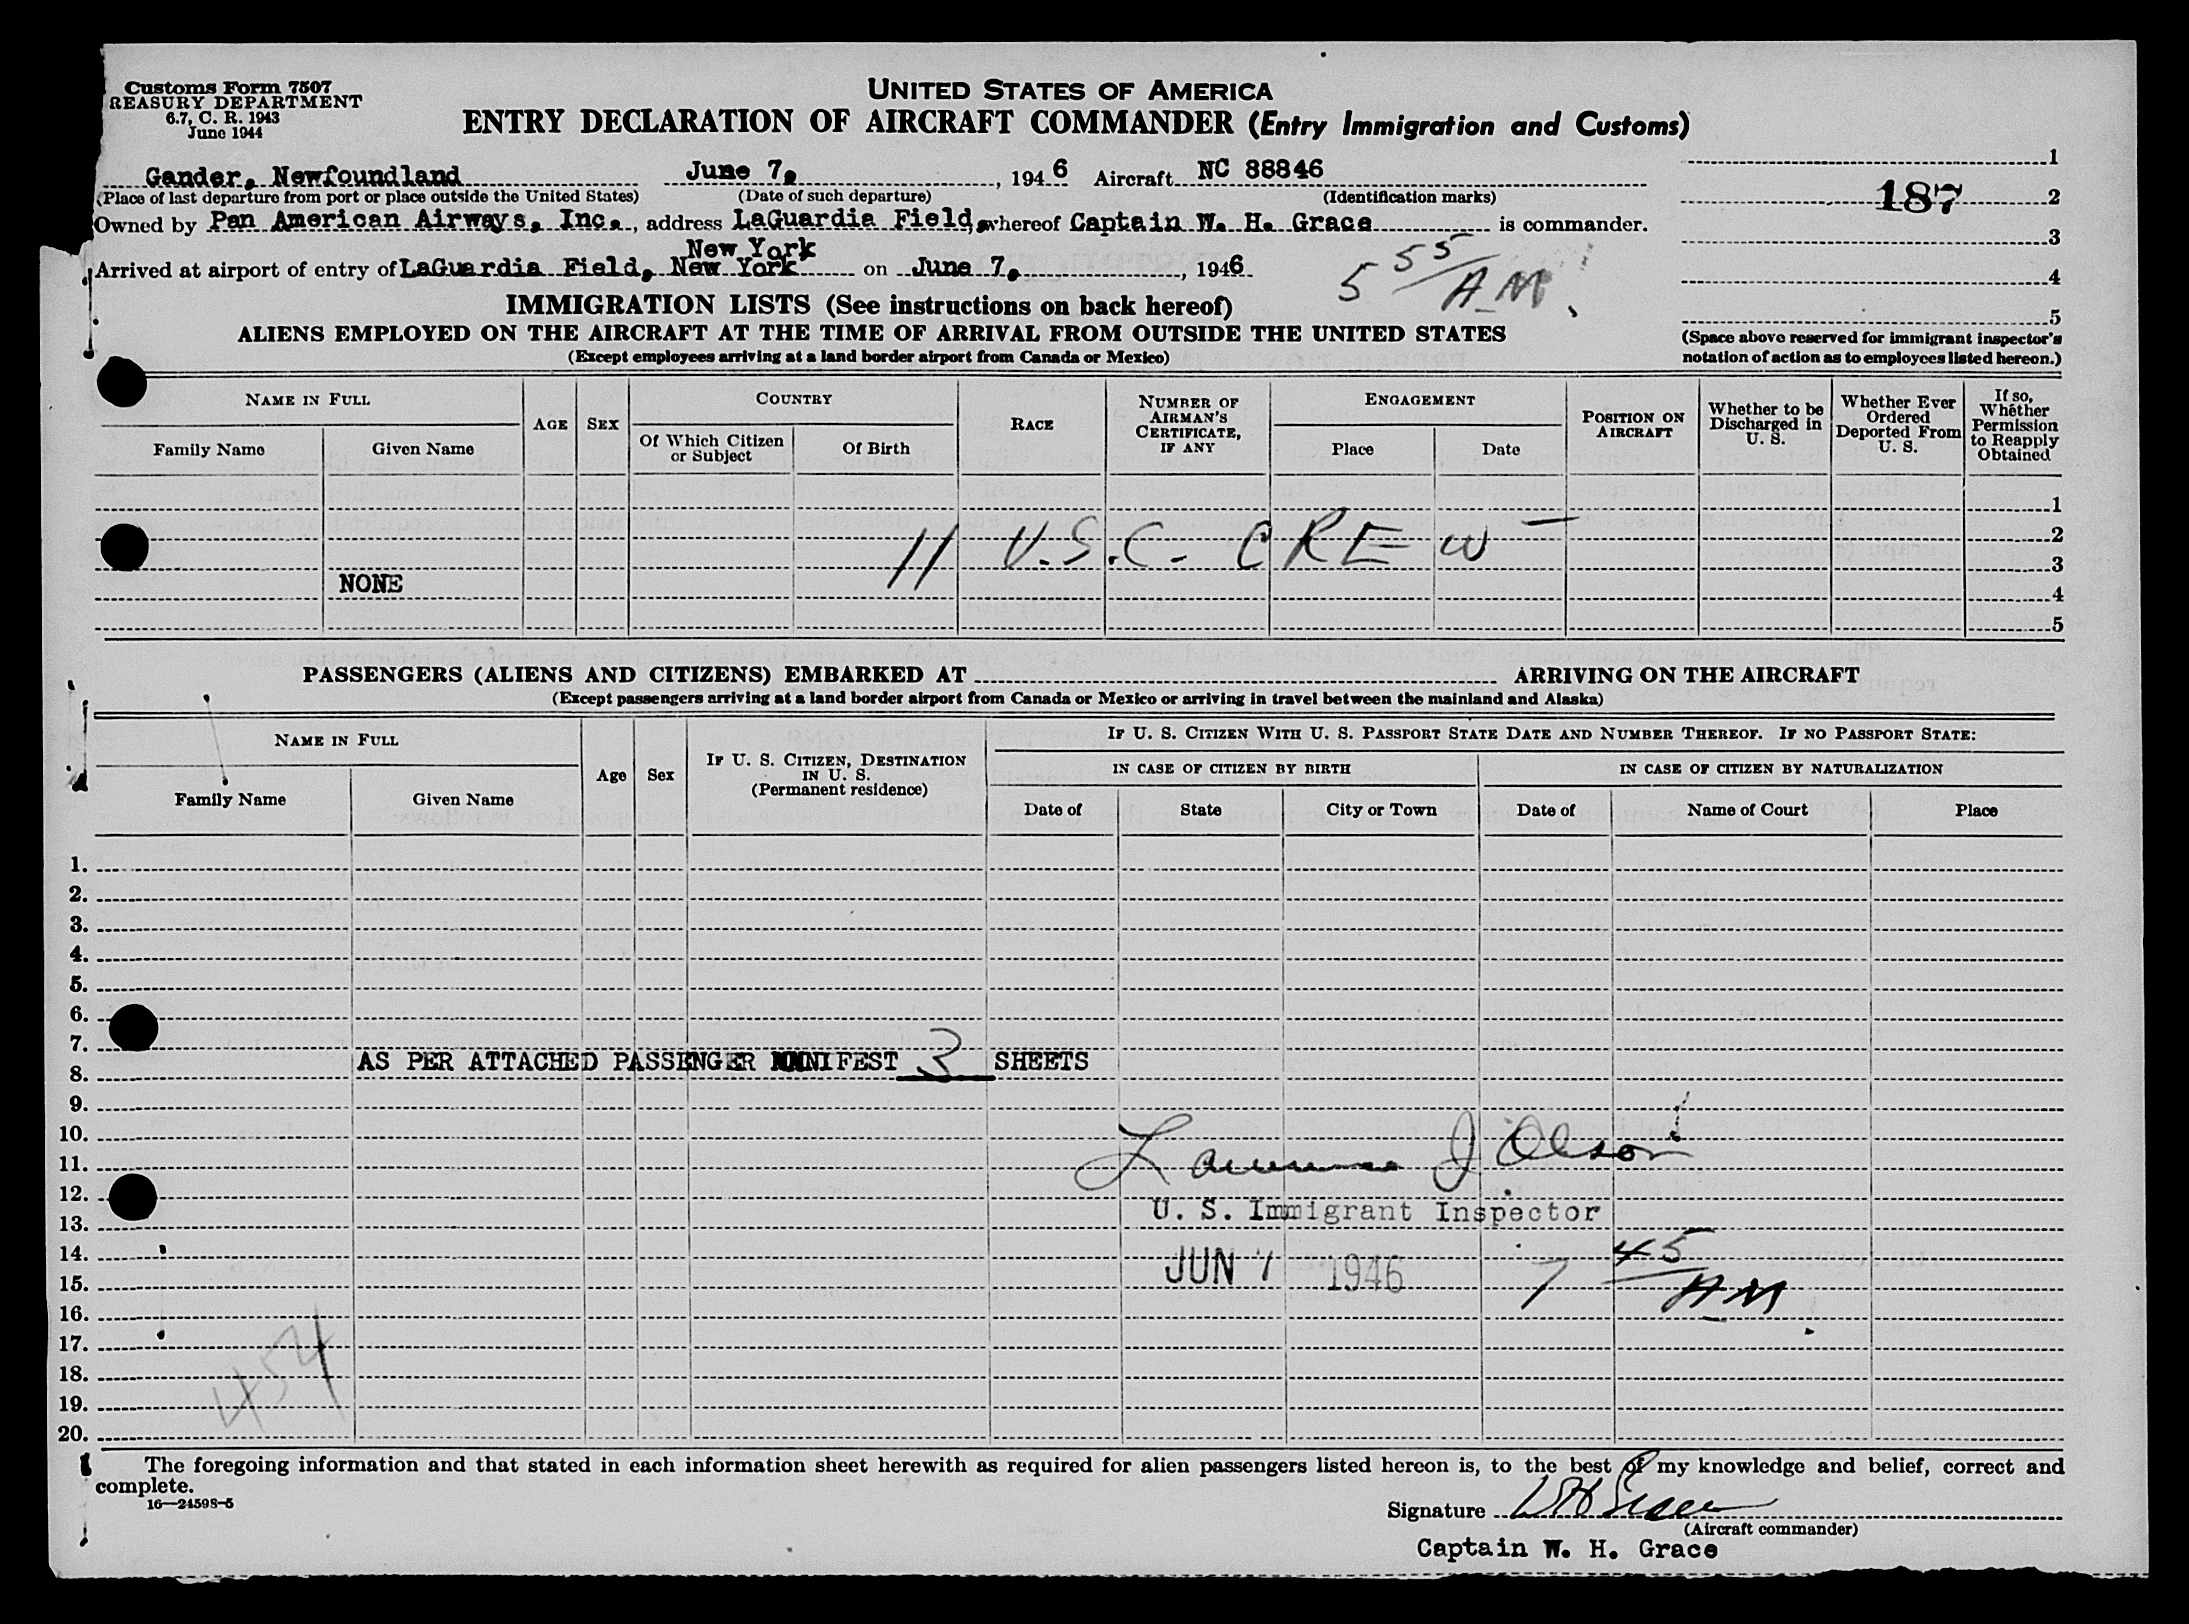 Customs Form 7507
REASURY DEPARTMENT
6.7, C. R. 1943
June 1944
UNITED STATES OF AMERICA
ENTRY DECLARATION OF AIRCRAFT COMMANDER (Entry Immigration and Customs)
Gander, Newfoundland June 7, , 194 6 Aircraft NC 88846
(Place of last departure from port or place outside the United States) (Date of such departure) (Identification marks)
Owned by Pan American Airways, Inc. , address LaGuardia Field, whereof Captain W. H. Grace is commander.
New York
Arrived at airport of entry of LaGuardia Field, New York on June 7, , 1946
5 55/AM.
1
187 2
3
4
5
(Space above reserved for immigrant inspector's
notation of action as to employees listed hereon.)
IMMIGRATION LISTS (See instructions on back hereof)
ALIENS EMPLOYED ON THE AIRCRAFT AT THE TIME OF ARRIVAL FROM OUTSIDE THE UNITED STATES
(Except employees arriving at a land border airport from Canada or Mexico)
NAME IN FULL
Family Name Given Name
AGE SEX
COUNTRY
Of Which Citizen or Subject Of Birth
RACE
NUMBER OF AIRMAN'S CERTIFICATE, IF ANY
ENGAGEMENT
Place Date
POSITION ON AIRCRAFT
Whether to be Discharged in U. S.
Whether Ever Ordered Deported From U. S.
If so, Whether Permission to Reapply Obtained
1
2
11 U.S.C. CREW —
3
NONE
4
5
PASSENGERS (ALIENS AND CITIZENS) EMBARKED AT ARRIVING ON THE AIRCRAFT
(Except passengers arriving at a land border airport from Canada or Mexico or arriving in travel between the mainland and Alaska)
NAME IN FULL
Family Name Given Name
Age Sex
IF U. S. CITIZEN, DESTINATION IN U. S. (Permanent residence)
IF U. S. CITIZEN WITH U. S. PASSPORT STATE DATE AND NUMBER THEREOF. IF NO PASSPORT STATE:
IN CASE OF CITIZEN BY BIRTH IN CASE OF CITIZEN BY NATURALIZATION
Date of State City or Town Date of Name of Court Place
1.
2.
3.
4.
5.
6.
7.
AS PER ATTACHED PASSENGER MANIFEST 3 SHEETS
8.
9.
10.
Lawrence J. Olson
11.
12.
U. S. Immigrant Inspector
13.
14.
JUN 7 1946 7 45/AM.
15.
16.
17.
18.
454
19.
20.
The foregoing information and that stated in each information sheet herewith as required for alien passengers listed hereon is, to the best of my knowledge and belief, correct and
complete.
16—24598-5
Signature WH Grace
(Aircraft commander)
Captain W. H. Grace